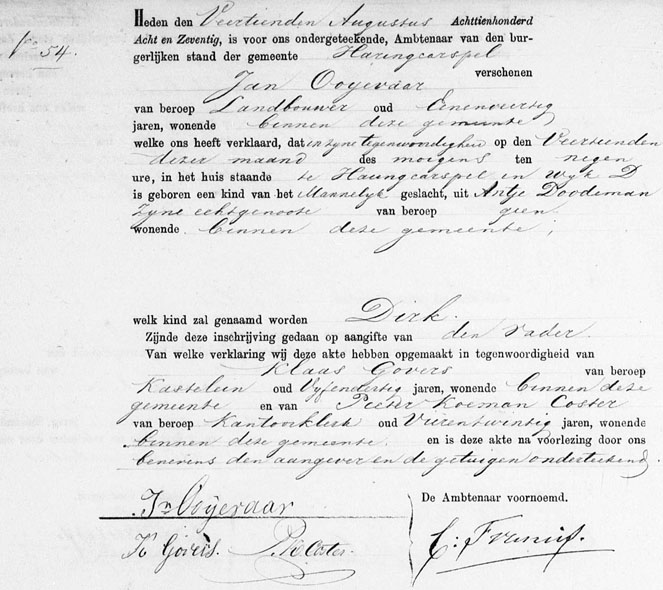 Heden den Veertienden Augustus Achttienhonderd
54
Acht en Zeventig, is voor ons ondergeteekende, Ambtenaar van den bur-
gerlijken stand der gemeente Haringcarspel
verschenen
Jan Ooyevaar
van beroep Landbouwer oud Eenenveertig
jaren, wonende binnen deze gemeente
welke ons heeft verklaard, dat in zyne tegenwoordigheid op den Veertienden
dezer maand des morgens ten negen
ure, in het huis staande te Haringcarspel in wyk D
is geboren een kind van het Mannelyk geslacht, uit Antje Doodeman
zyne echtgenoote van beroep geen
wonende binnen deze gemeente;
welk kind zal genaamd worden Dirk.
Zijnde deze inschrijving gedaan op aangifte van den vader.
Van welke verklaring wij deze akte hebben opgemaakt in tegenwoordigheid van
Klaas Govers van beroep
Kastelein oud Vyfendertig jaren, wonende binnen deze
gemeente en van Pieter Koeman Coster
van beroep Kantoorklerk oud Vierentwintig jaren, wonende
binnen deze gemeente. en is deze akte na voorlezing door ons
benevens den aangever en de getuigen onderteekend.
De Ambtenaar voornoemd.
Jn Ooijevaar
K Govers. P. K. Coster.